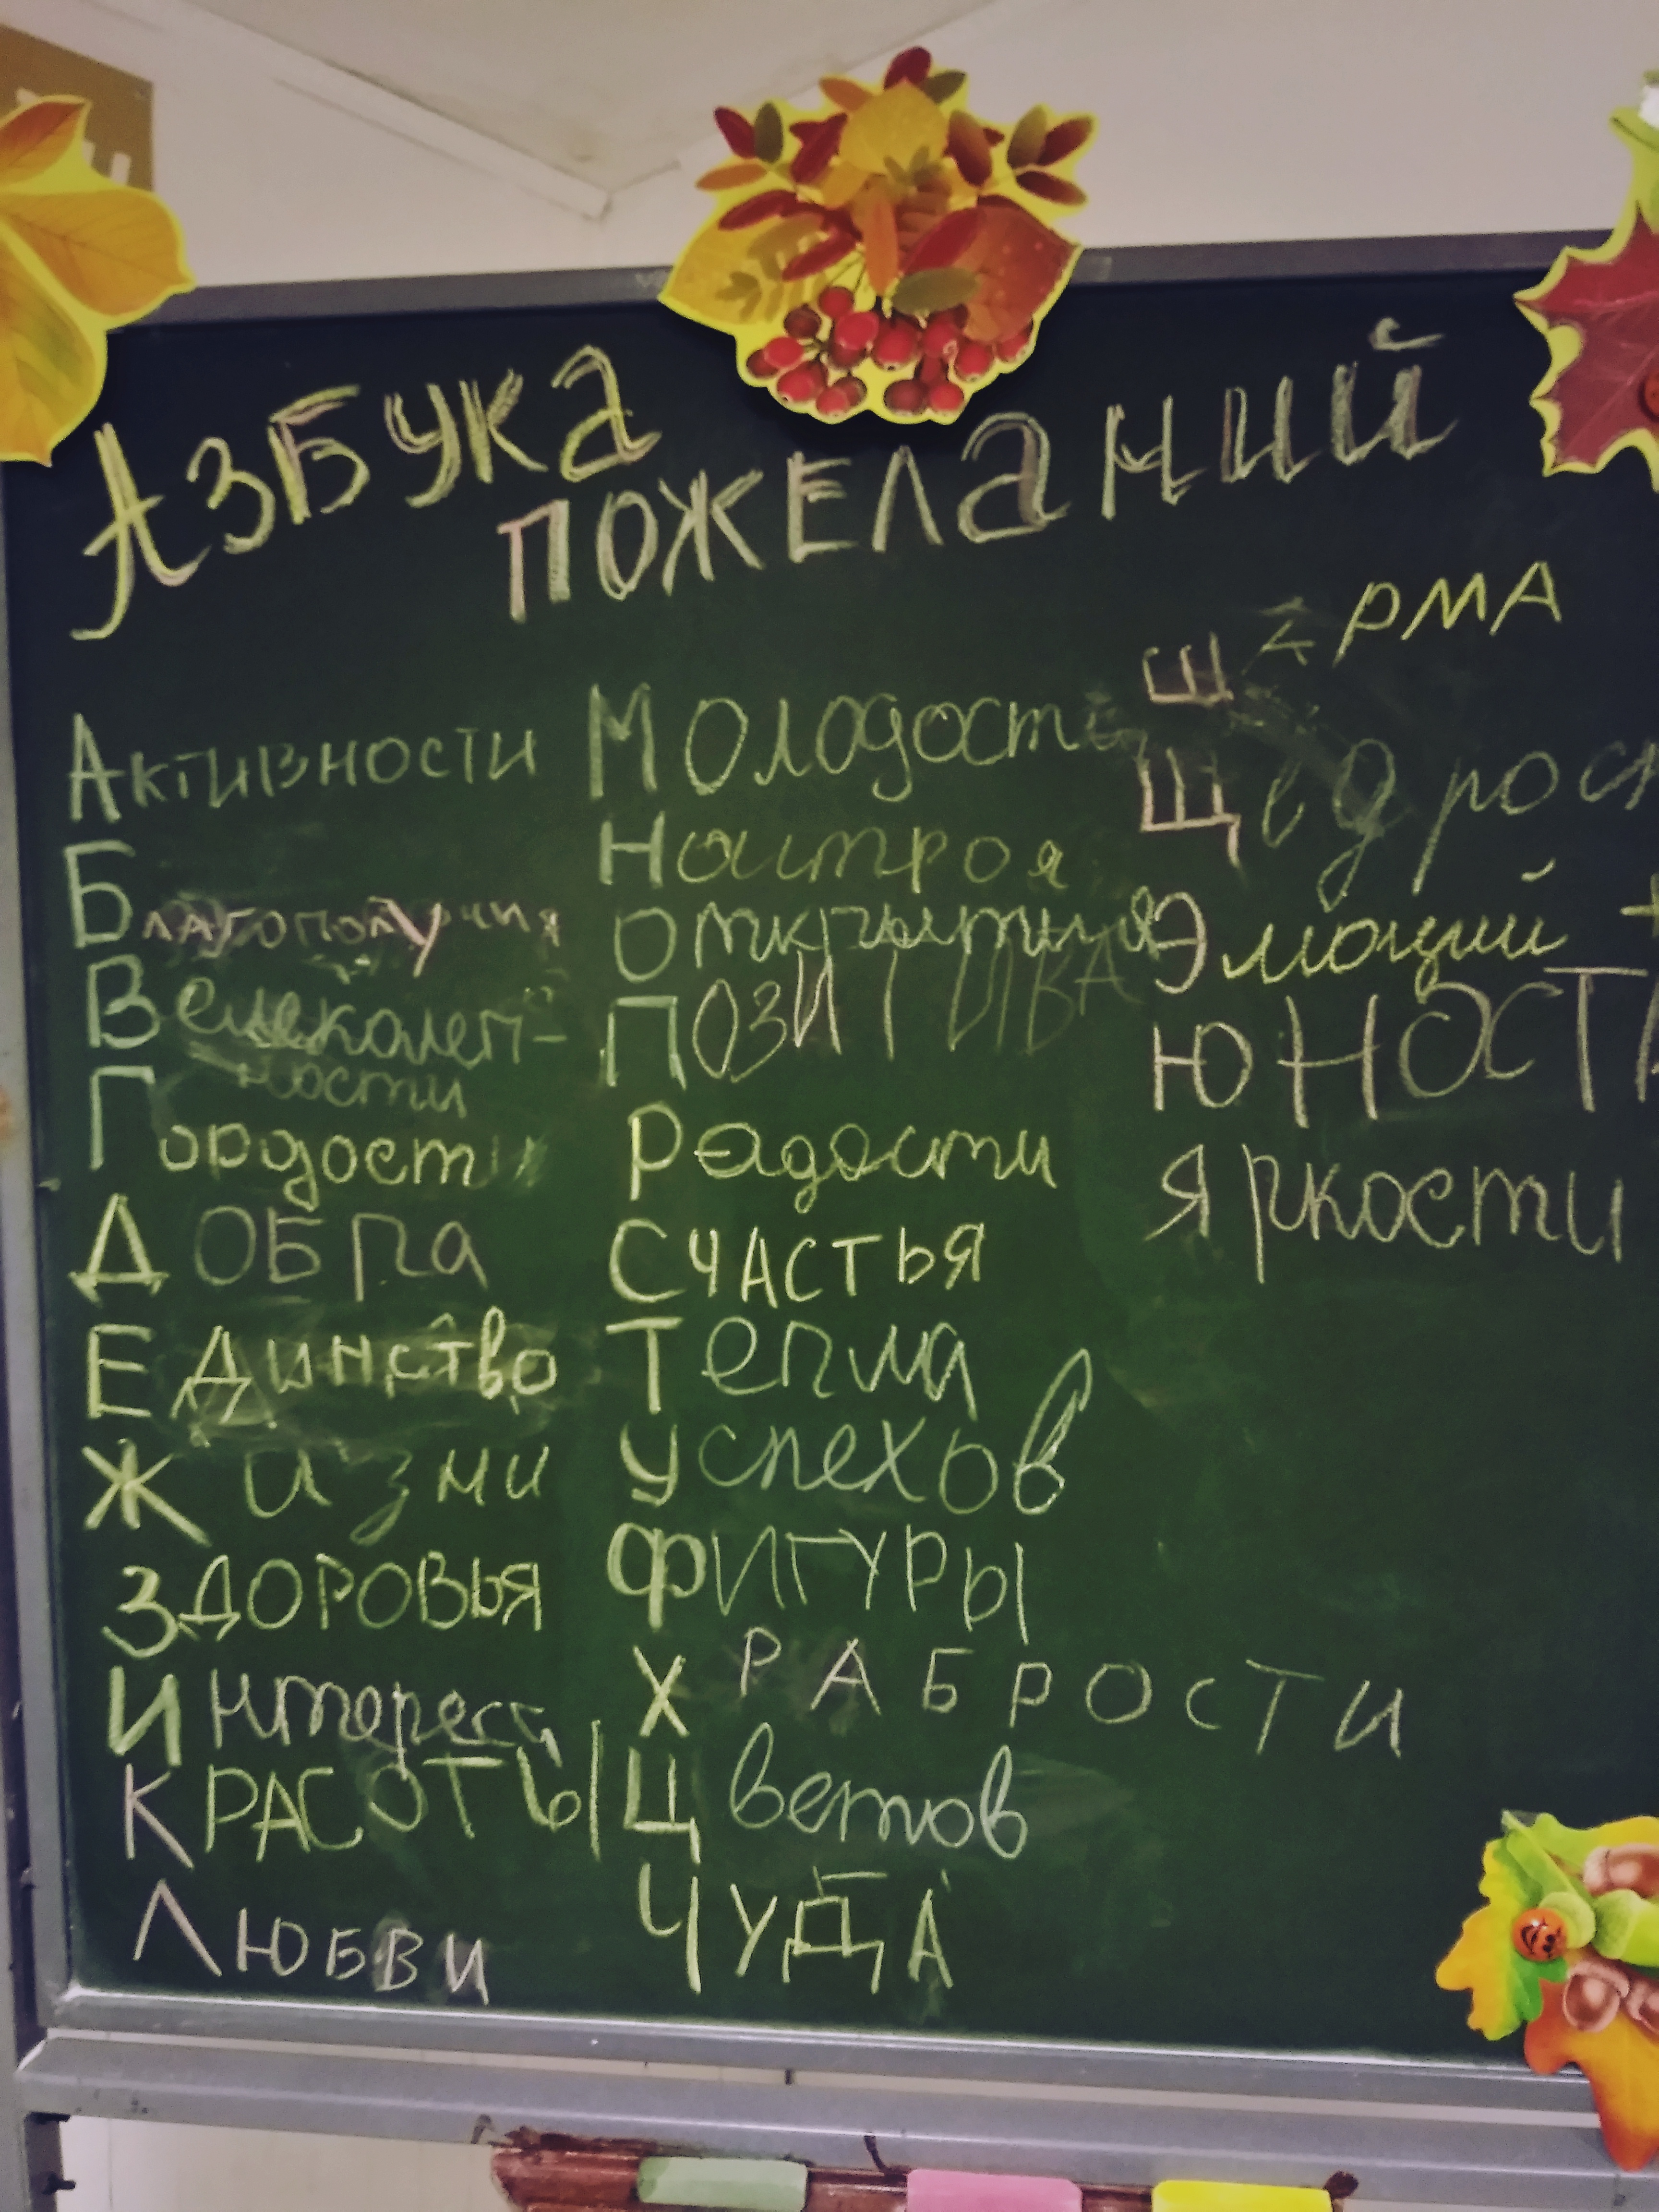 Азбука
пожеланий
Активности
Благополучия
Великолеп-
ности
Гордости
Добра
Единство
Жизни
Здоровья
Интереса
Красоты
Любви
Молодости
Настроя
Открытия
Позитива
Радости
Счастья
Тепла
Успехов
Фигуры
Храбрости
Цветов
Чуда
Шарма
Щедрос
Эмоций +
Юност
Яркости